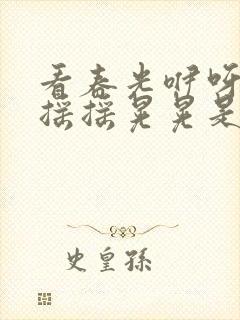 看春光咿呀
摇摇晃晃是
史皇孫